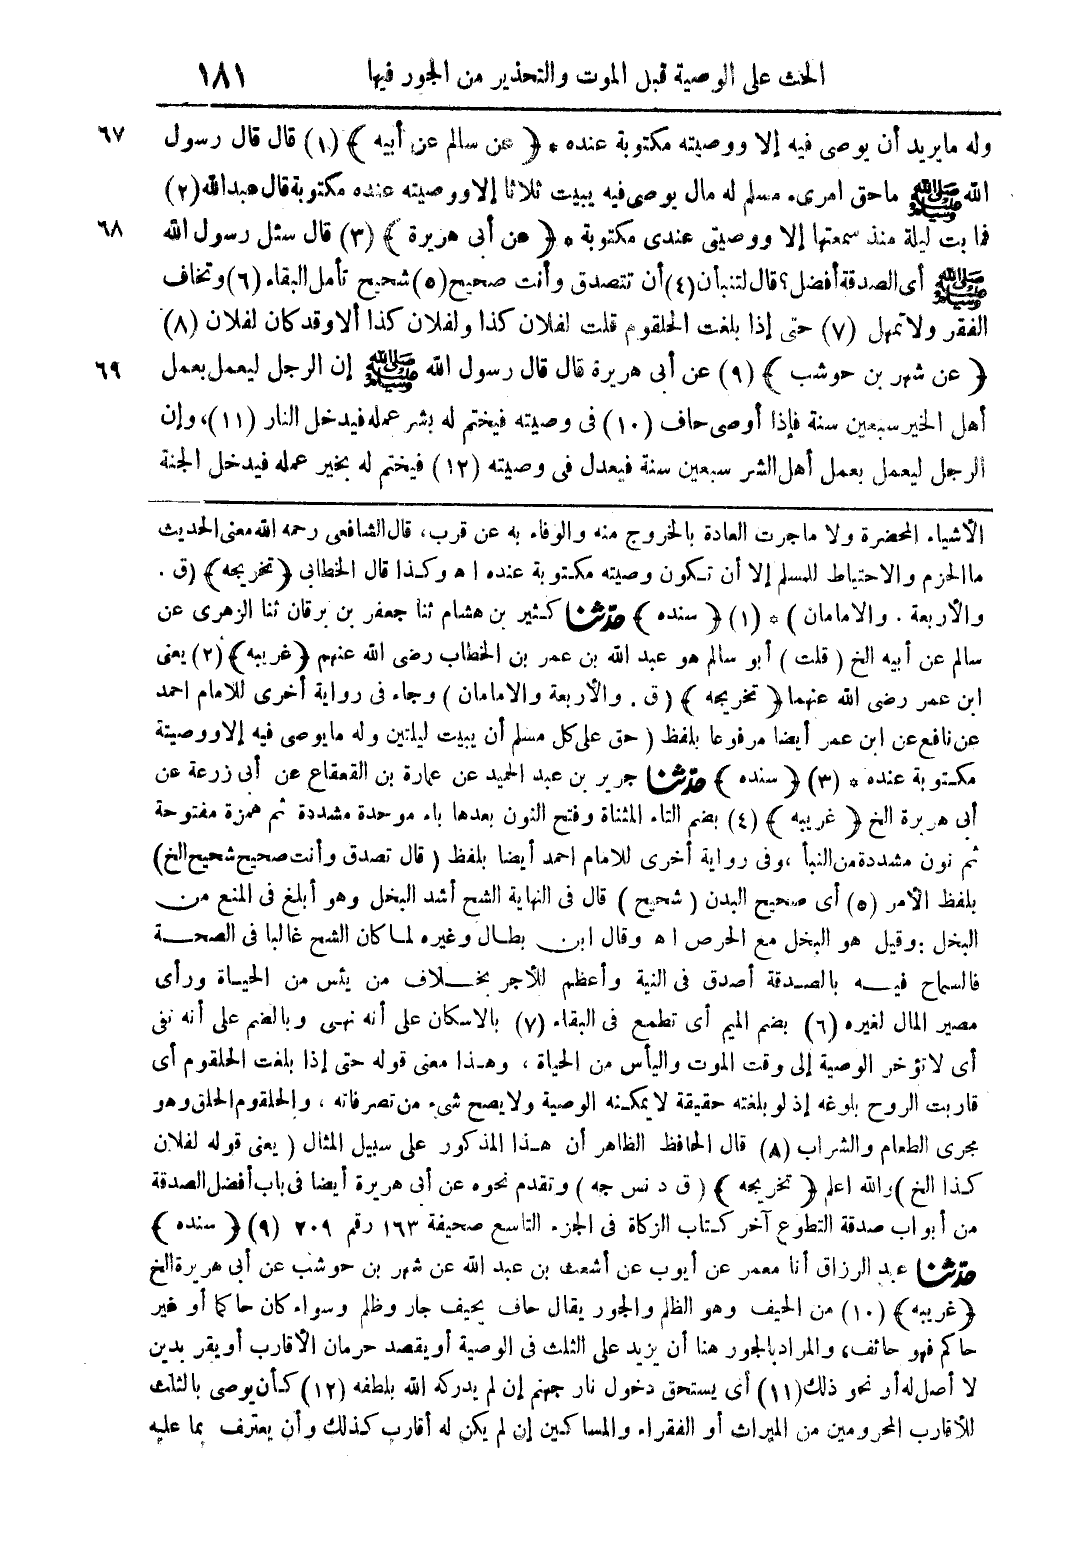 الحث على الوصية قبل الموت والتحذير من الجور فيها ١٨١
وله ما يريد أن يوصى فيه إلا ووصيته مكتوبة عنده * ﴿ عن سالم عن أبيه ﴾ (١) قال قال رسول ٦٧
الله ﷺ ما حق امرىء مسلم له مال يوصى فيه يبيت ثلاثا إلا ووصيته عنده مكتوبة قال عبد الله (٢)
فما بت ليلة منذ سمعتها إلا ووصيتى عندى مكتوبة * ﴿ عن أبى هريرة ﴾ (٣) قال سئل رسول الله ٦٨
ﷺ أى الصدقة أفضل؟ قال لتنبأن (٤) أن تتصدق وأنت صحيح (٥) شحيح تأمل البقاء (٦) وتخاف
الفقر ولا تمهل (٧) حتى إذا بلغت الحلقوم قلت لفلان كذا ولفلان كذا ألا وقد كان لفلان (٨)
﴿ عن شهر بن حوشب ﴾ (٩) عن أبى هريرة قال قال رسول الله ﷺ إن الرجل ليعمل بعمل ٦٩
أهل الخير سبعين سنة فإذا أوصى حاف (١٠) فى وصيته فيختم له بشر عمله فيدخل النار (١١)، وإن
الرجل ليعمل بعمل أهل الشر سبعين سنة فيعدل فى وصيته (١٢) فيختم له بخير عمله فيدخل الجنة
الأشياء المحضرة ولا ما جرت العادة بالخروج منه والوفاء به عن قرب، قال الشافعى رحمه الله معنى الحديث
ما الحزم والاحتياط للمسلم إلا أن تكون وصيته مكتوبة عنده ا ه وكذا قال الخطابى ﴿ تخريجه ﴾ (ق .
والأربعة . والامامان ) * (١) ﴿ سنده ﴾ حدثنا كثير بن هشام ثنا جعفر بن برقان ثنا الزهرى عن
سالم عن أبيه الخ ( قلت ) أبو سالم هو عبد الله بن عمر بن الخطاب رضى الله عنهم ﴿ غريبه ﴾ (٢) يعنى
ابن عمر رضى الله عنهما ﴿ تخريجه ﴾ ( ق . والأربعة والامامان ) وجاء فى رواية أخرى للامام احمد
عن نافع عن ابن عمر أيضا مرفوعا بلفظ ( حق على كل مسلم أن يبيت ليلتين وله ما يوصى فيه إلا ووصيتة
مكتوبة عنده * (٣) ﴿ سنده ﴾ حدثنا جرير بن عبد الحميد عن عمارة بن القعقاع عن أبى زرعة عن
أبى هريرة الخ ﴿ غريبه ﴾ (٤) بضم التاء المثناة وفتح النون بعدها باء موحدة مشددة ثم همزة مفتوحة
ثم نون مشددة من النبأ ، وفى رواية أخرى للامام احمد أيضا بلفظ ( قال تصدق وأنت صحيح شحيح الخ)
بلفظ الأمر (٥) أى صحيح البدن ( شحيح ) قال فى النهاية الشح أشد البخل وهو أبلغ فى المنع من
البخل : وقيل هو البخل مع الحرص ا ه وقال ابن بطال وغيره لما كان الشح غالبا فى الصحة
فالسماح فيه بالصدقة أصدق فى النية وأعظم للأجر بخلاف من يئس من الحياة ورأى
مصير المال لغيره (٦) بضم الميم أى تطمع فى البقاء (٧) بالاسكان على أنه نهى وبالضم على أنه نفى
أى لا تؤخر الوصية إلى وقت الموت واليأس من الحياة ، وهذا معنى قوله حتى إذا بلغت الحلقوم أى
قاربت الروح بلوغه إذ لو بلغته حقيقة لا يمكنه الوصية ولا يصح شىء من تصرفاته ، والحلقوم الحلق وهو
مجرى الطعام والشراب (٨) قال الحافظ الظاهر أن هذا المذكور على سبيل المثال ( يعنى قوله لفلان
كذا الخ ) والله اعلم ﴿ تخريجه ﴾ ( ق د نس جه ) وتقدم نحوه عن أبى هريرة أيضا فى باب أفضل الصدقة
من أبواب صدقة التطوع آخر كتاب الزكاة فى الجزء التاسع صحيفة ١٦٣ رقم ٢٠٩ (٩) ﴿ سنده ﴾
حدثنا عبد الرزاق أنا معمر عن أيوب عن أشعث بن عبد الله عن شهر بن حوشب عن أبى هريرة الخ
﴿ غريبه ﴾ (١٠) من الحيف وهو الظلم والجور يقال حاف يحيف جار وظلم وسواء كان حاكما أو غير
حاكم فهو حائف، والمراد بالجور هنا أن يزيد على الثلث فى الوصية أو يقصد حرمان الأقارب أو يقر بدين
لا أصل له أو نحو ذلك (١١) أى يستحق دخول نار جهنم إن لم يدركه الله بلطفه (١٢) كأن يوصى بالثلث
للأقارب المحرومين من الميراث أو الفقراء والمساكين إن لم يكن له أقارب كذلك وأن يعترف بما عليه